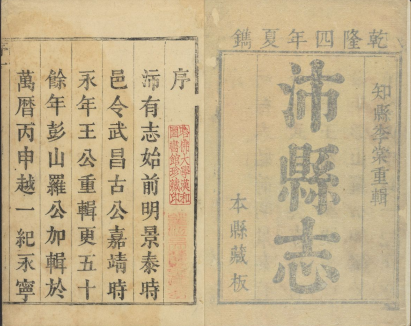 乾隆四年夏鐫
知縣李棠重輯
沛縣志
本縣藏板
序
沛有志始前明景泰時
邑令武昌古公嘉靖時
永年王公重輯更五十
餘年彭山羅公加輯於
萬曆丙申越一紀永寧
哈佛大學漢和
圖書館珍藏印